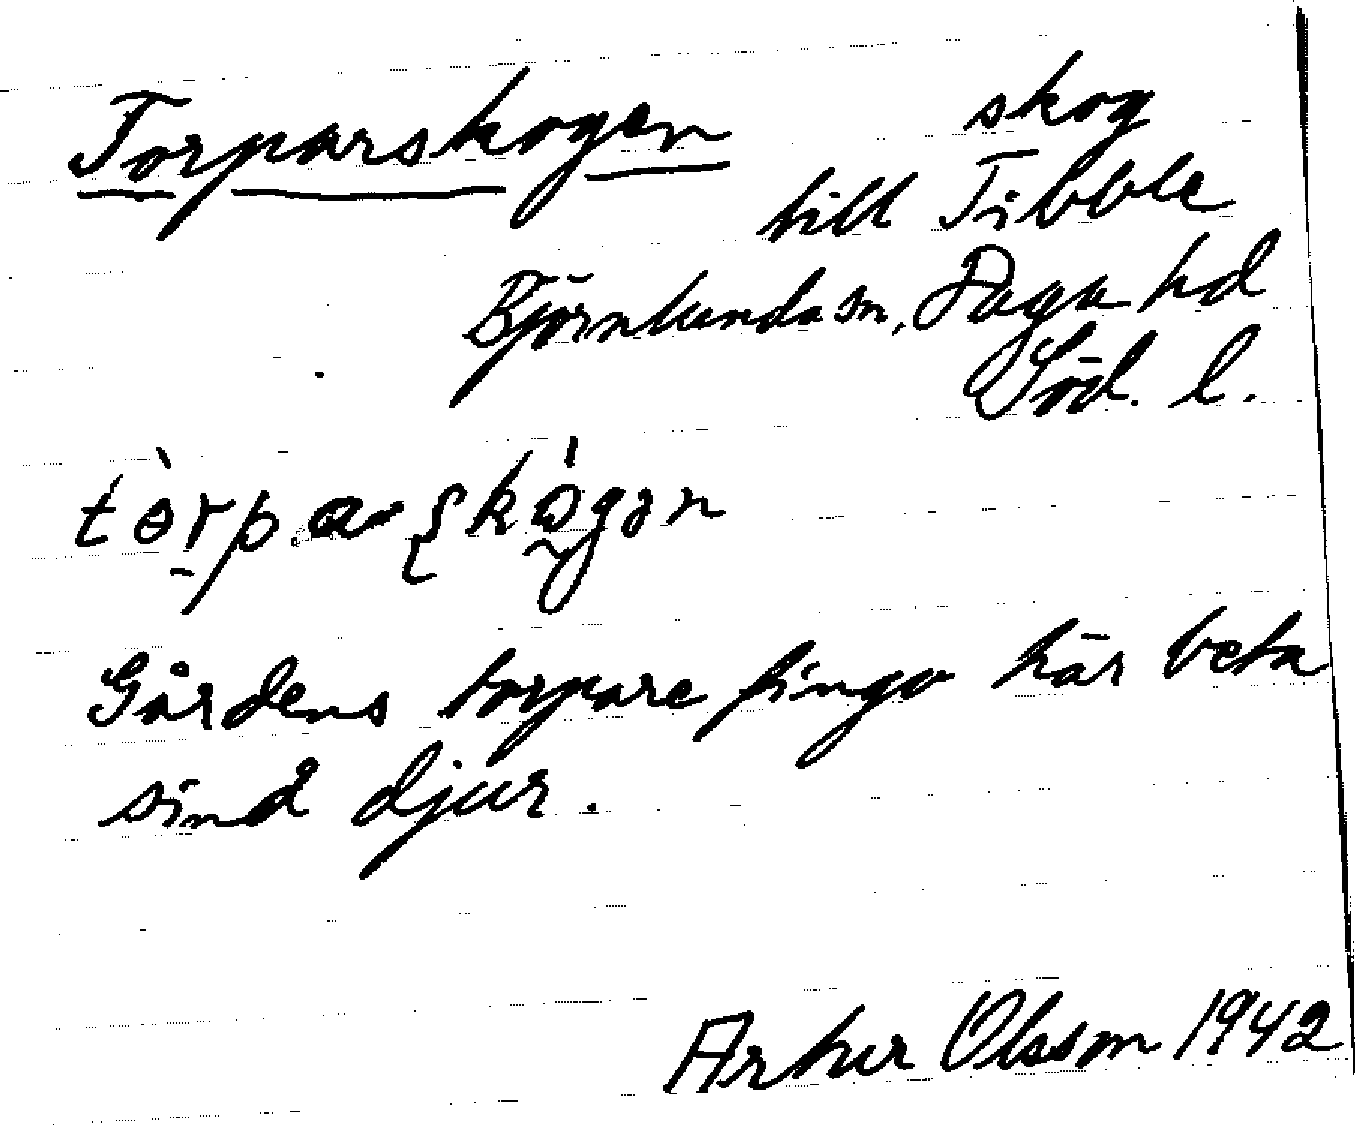 Torparskogen skog
till Tibble
Björnlunda sn, Daga hd
Söd. l.
Gårdens torpare fingo här beta
sina djur.
Arthur Olsson 1942